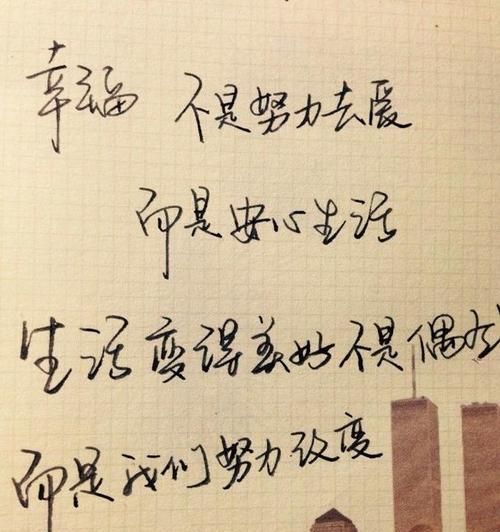 幸福 不是努力去爱
而是安心生活
生活变得美好不是偶
而是我们努力改变